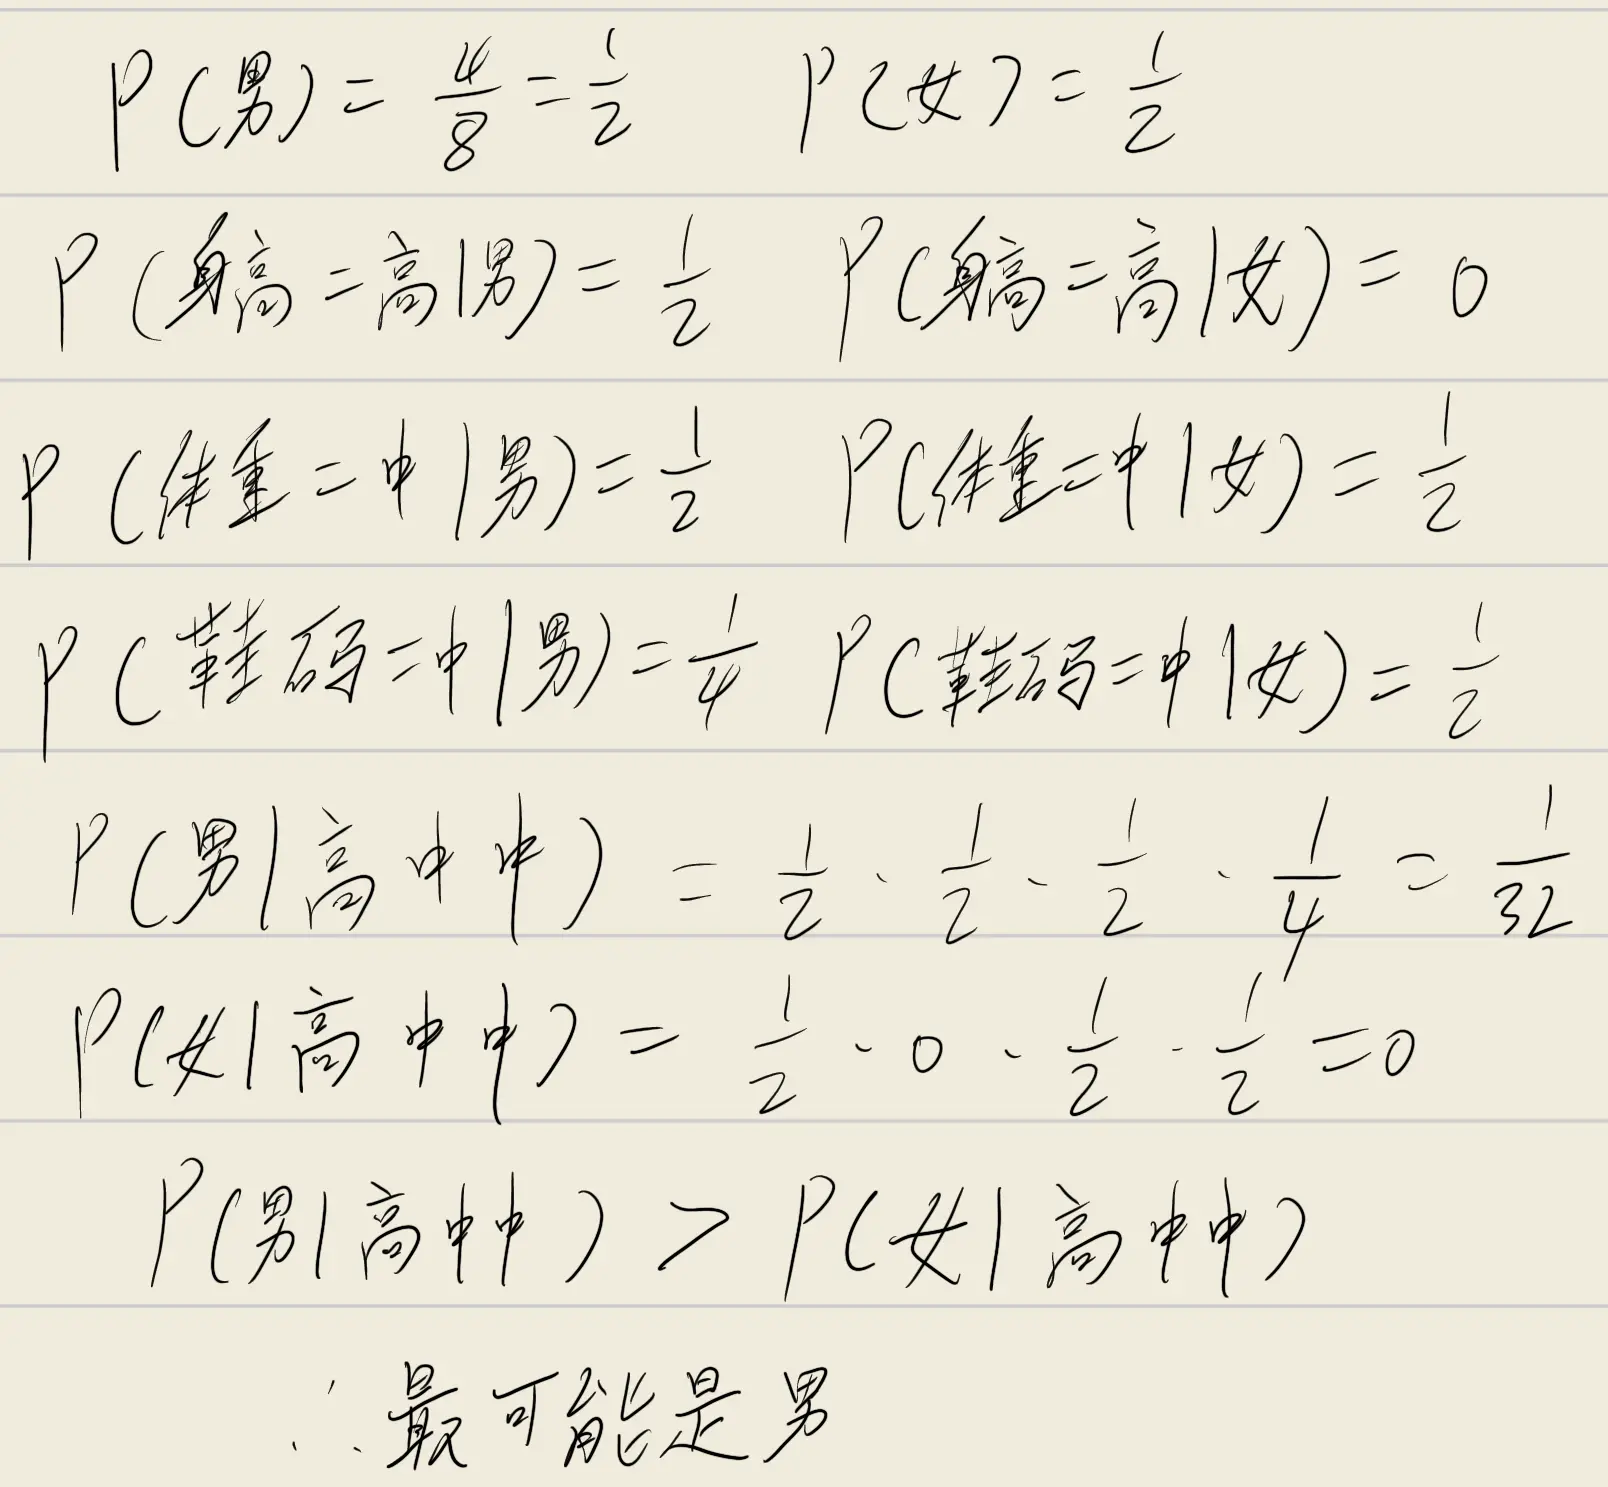 P(男) = 4/8 = 1/2 P(女) = 1/2
P(身高=高|男) = 1/2 P(身高=高|女) = 0
P(体重=中|男) = 1/2 P(体重=中|女) = 1/2
P(鞋码=中|男) = 1/4 P(鞋码=中|女) = 1/2
P(男|高中中) = 1/2 · 1/2 · 1/2 · 1/4 = 1/32
P(女|高中中) = 1/2 · 0 · 1/2 · 1/2 = 0
P(男|高中中) > P(女|高中中)
∴最可能是男